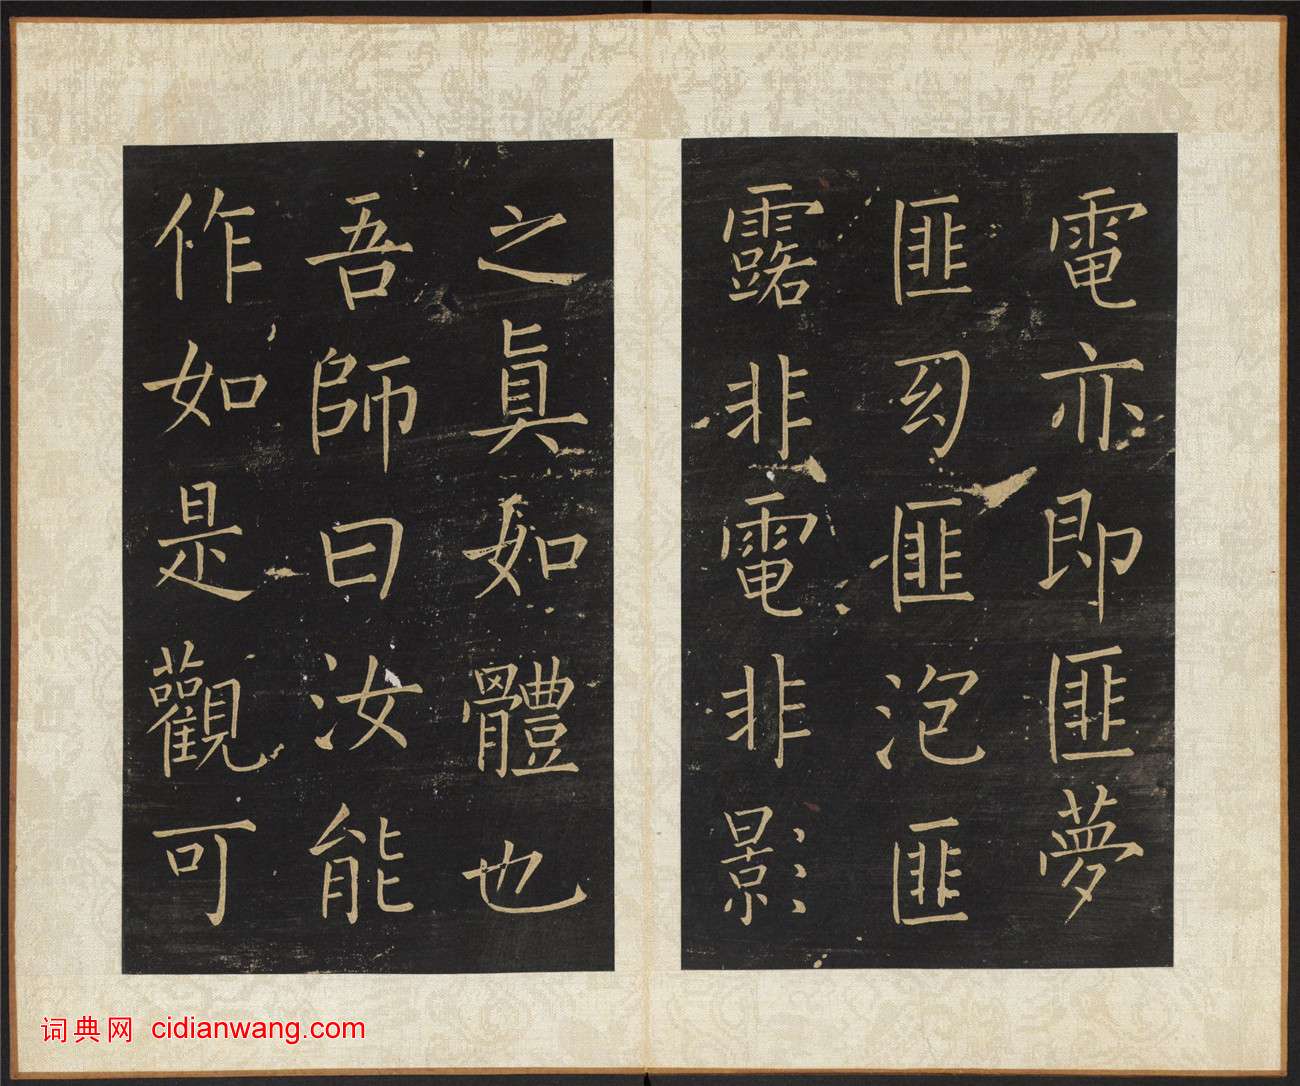 電亦即匪夢
匪幻匪泡匪
露非電非影
之真如體也
吾師曰汝能
作如是觀可
词典网 cidianwang.com